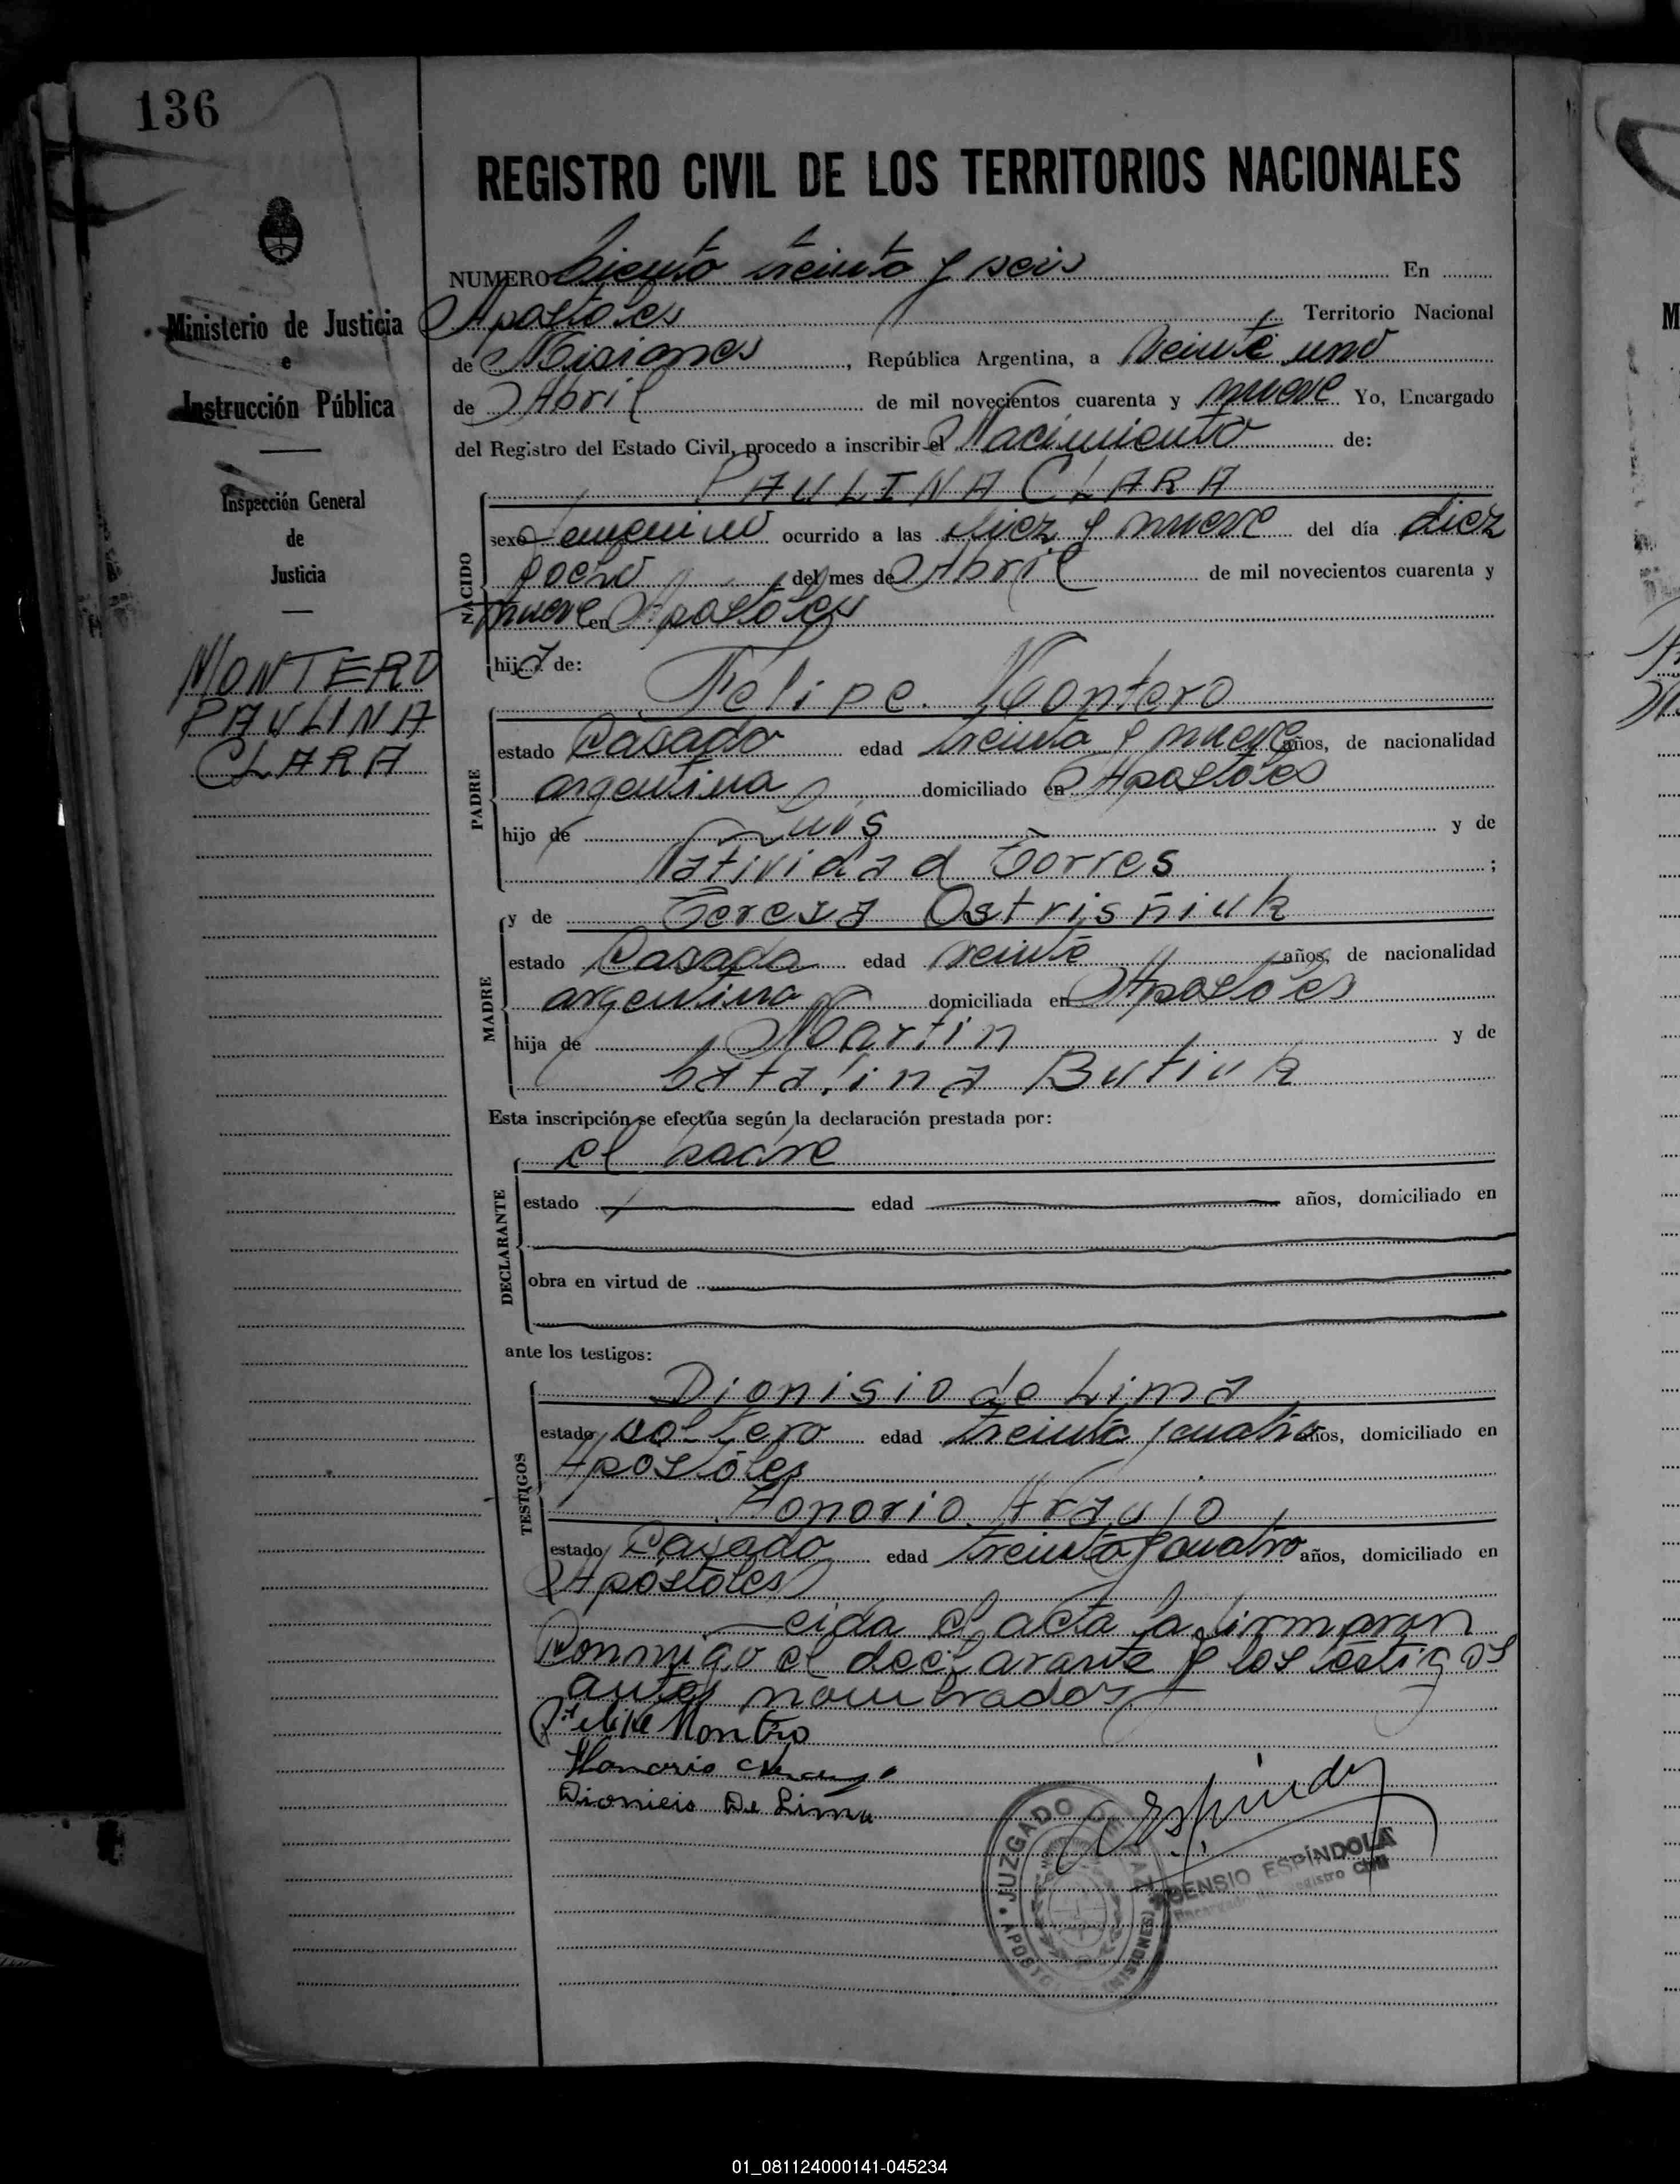 136
REGISTRO CIVIL DE LOS TERRITORIOS NACIONALES
Ministerio de Justicia
e
Instrucción Pública
Inspección General
de
Justicia
MONTERO
PAULINA
CLARA
NUMERO Ciento treinta y seis En
Apostoles Territorio Nacional
de Misiones, República Argentina, a Veinte uno
de Abril de mil novecientos cuarenta y nueve Yo, Encargado
del Registro del Estado Civil, procedo a inscribir el Nacimiento de:
PAULINA CLARA
NACIDO
sexo femenino ocurrido a las diez y nueve del día diez
y ocho del mes de Abril de mil novecientos cuarenta y
nueve en Apostoles
hija de:
Felipe Montero
PADRE
estado Casado edad treinta y nueve años, de nacionalidad
argentina domiciliado en Apostoles
hijo de Luis y de
Natividad Torres ;
y de Teresa Ostrisñiuk
MADRE
estado Casada edad veinte años, de nacionalidad
argentina domiciliada en Apostoles
hija de Martin y de
Catalina Butiuk
Esta inscripción se efectúa según la declaración prestada por:
el padre
DECLARANTE
estado edad años, domiciliado en
obra en virtud de
ante los testigos:
Dionisio de Lima
TESTIGOS
estado soltero edad treinta y cuatro años, domiciliado en
Apostoles
Honorio Araujo
estado Casado edad treinta y cuatro años, domiciliado en
Apostoles
el acta la firmaron
conmigo el declarante y los testigos
antes nombrados
Felipe Montero
Honorio
Dionicio De Lima
JUZGADO DE PAZ
APOSTOLES (MISIONES)
ASENSIO ESPÍNDOLA
Encargado del Registro Civil
01_081124000141-045234